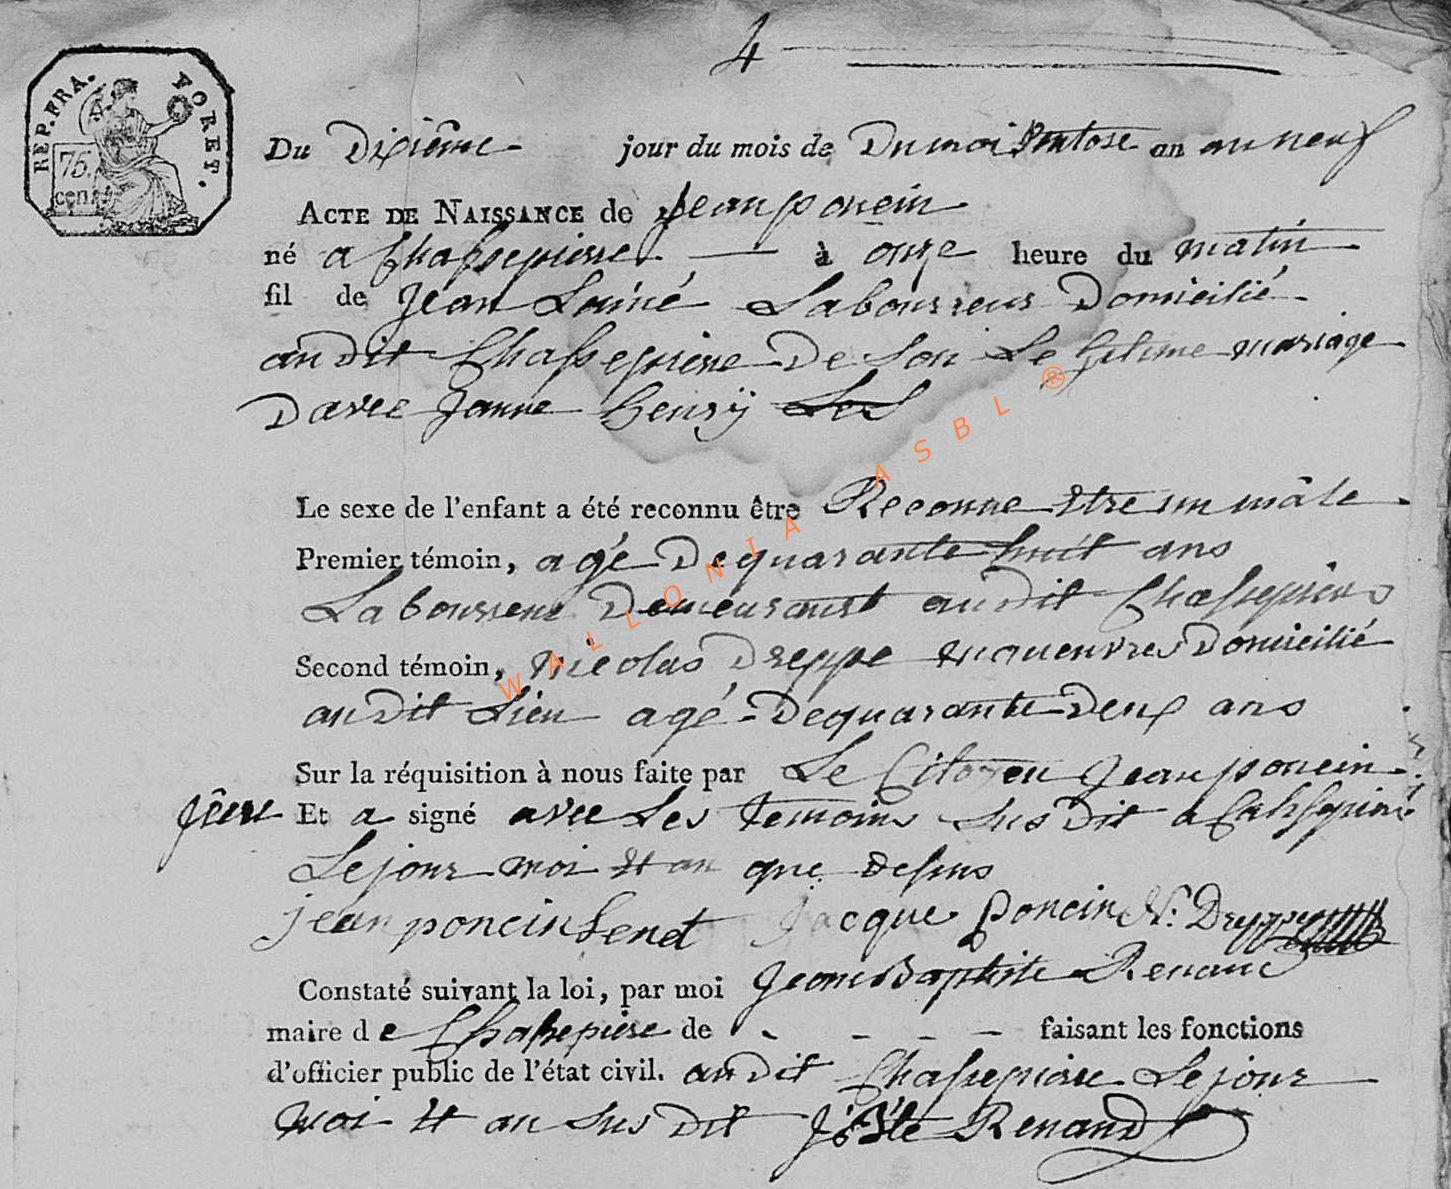 4
REP. FRA.
FORET.
75.
cent
Du Dixiême jour du mois de Du moi Ventose an an neuf
ACTE DE NAISSANCE de Jean poncin
né a Chassepierre à onze heure du matin
fil de Jean Lainé Laboureur Domicilié
audit Chassepierre De Son Le gitime mariage
Davec Janne henrÿ
Le sexe de l'enfant a été reconnu être Reconnue être un mâle
Premier témoin, agé De quarante huit ans
Laboureur Demeurant audit Chassepierre
Second témoin, Nicolas Dreppe manuevres Domicilié
audit Lieu agé De quarante Deux ans
Sur la réquisition à nous faite par Le Citoyen Jean poncin
pêere Et a signé avec Les temoins Sus Dit a
Le jour moi et an que Dessus
jean poncin Jacque Poncin N: Dreppe
Constaté suivant la loi, par moi Jean Baptiste Renauc
maire de Chassepiere de - - - - faisant les fonctions
d'officier public de l'état civil. audit Chassepiere Le jour
Moi et an Sus Dit J: Bte Renaud
WALLONIA ASBL ®